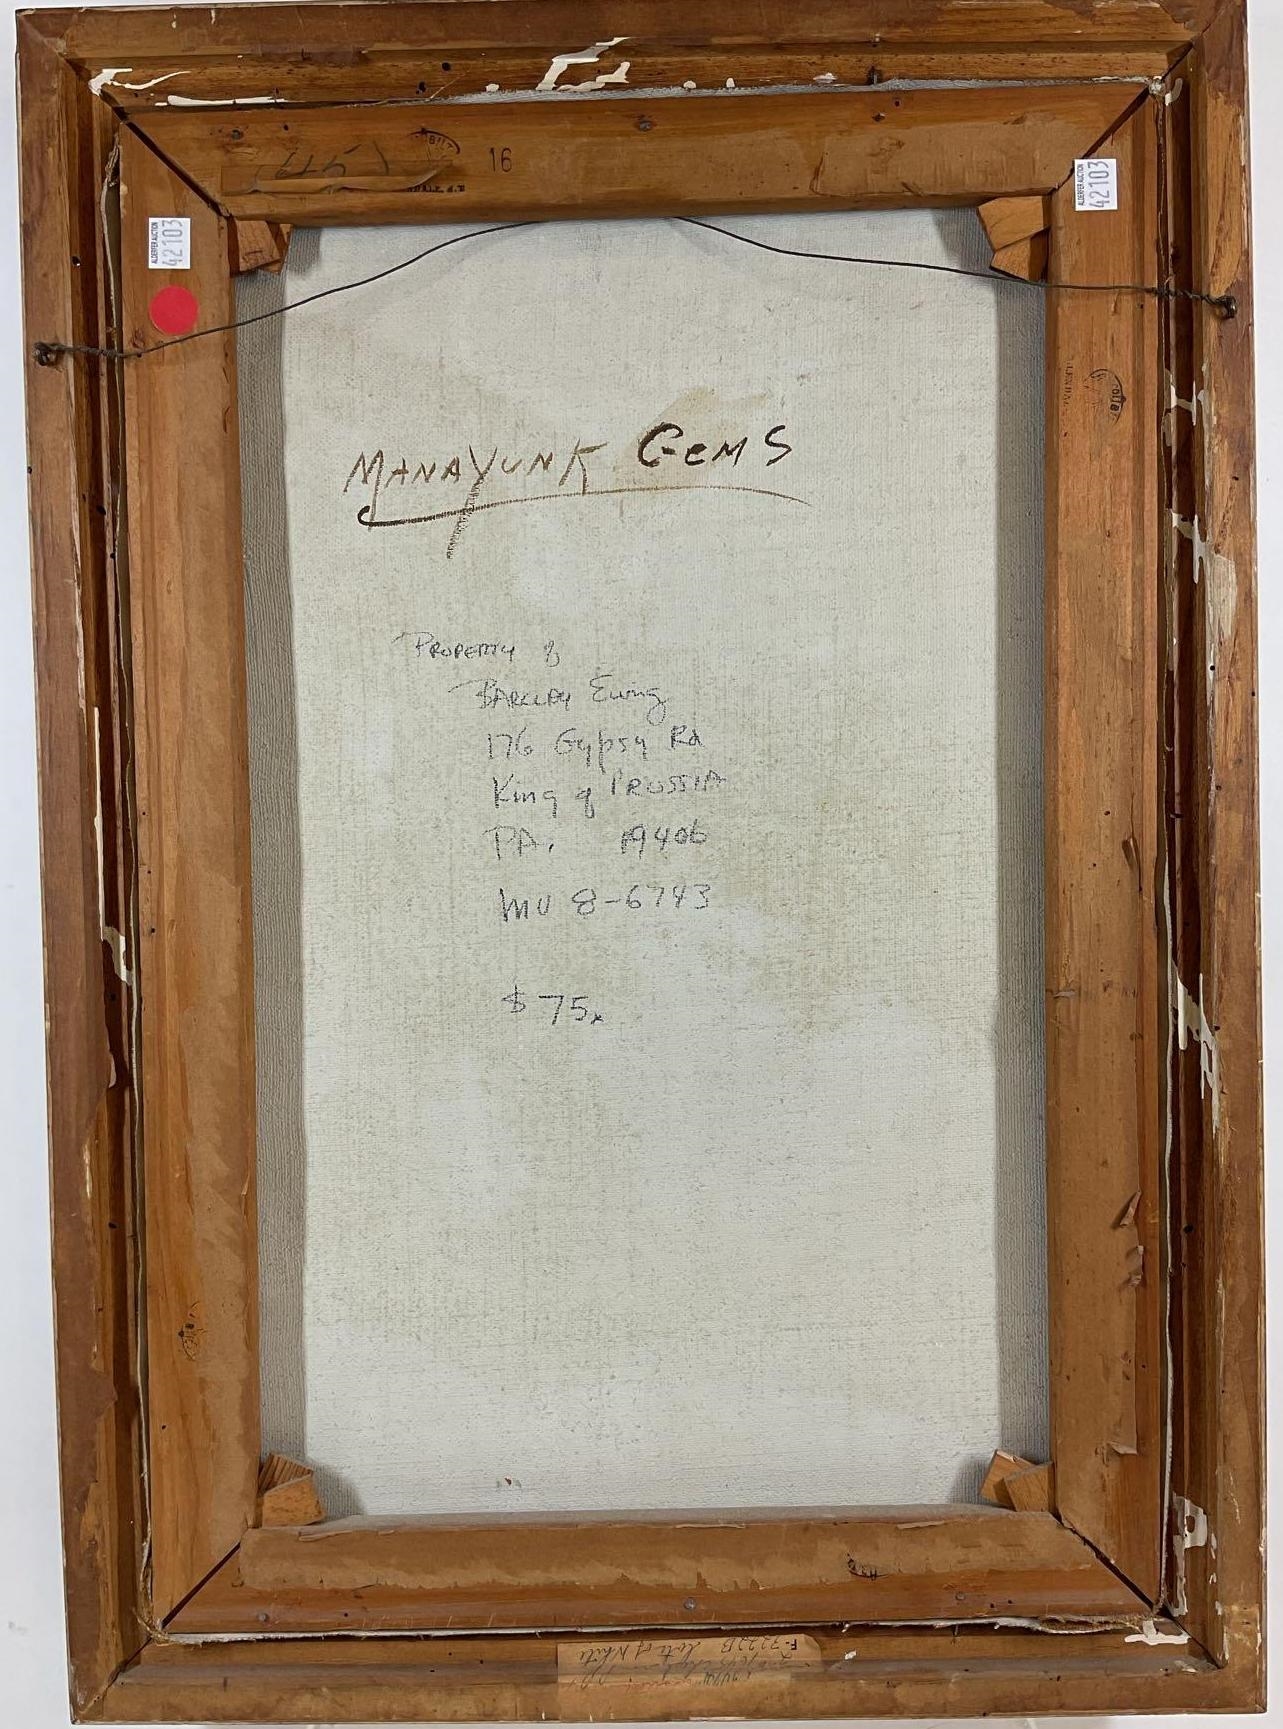 16
ALDERFER AUCTION
42103
ALDERFER AUCTION
42103
MANAYUNK GEMS
PROPERTY of
BARCLAY Ewing
176 Gypsy Rd
King of PRUSSIA
PA. 19406
MU 8-6743
$75.
F-7222B lots of White